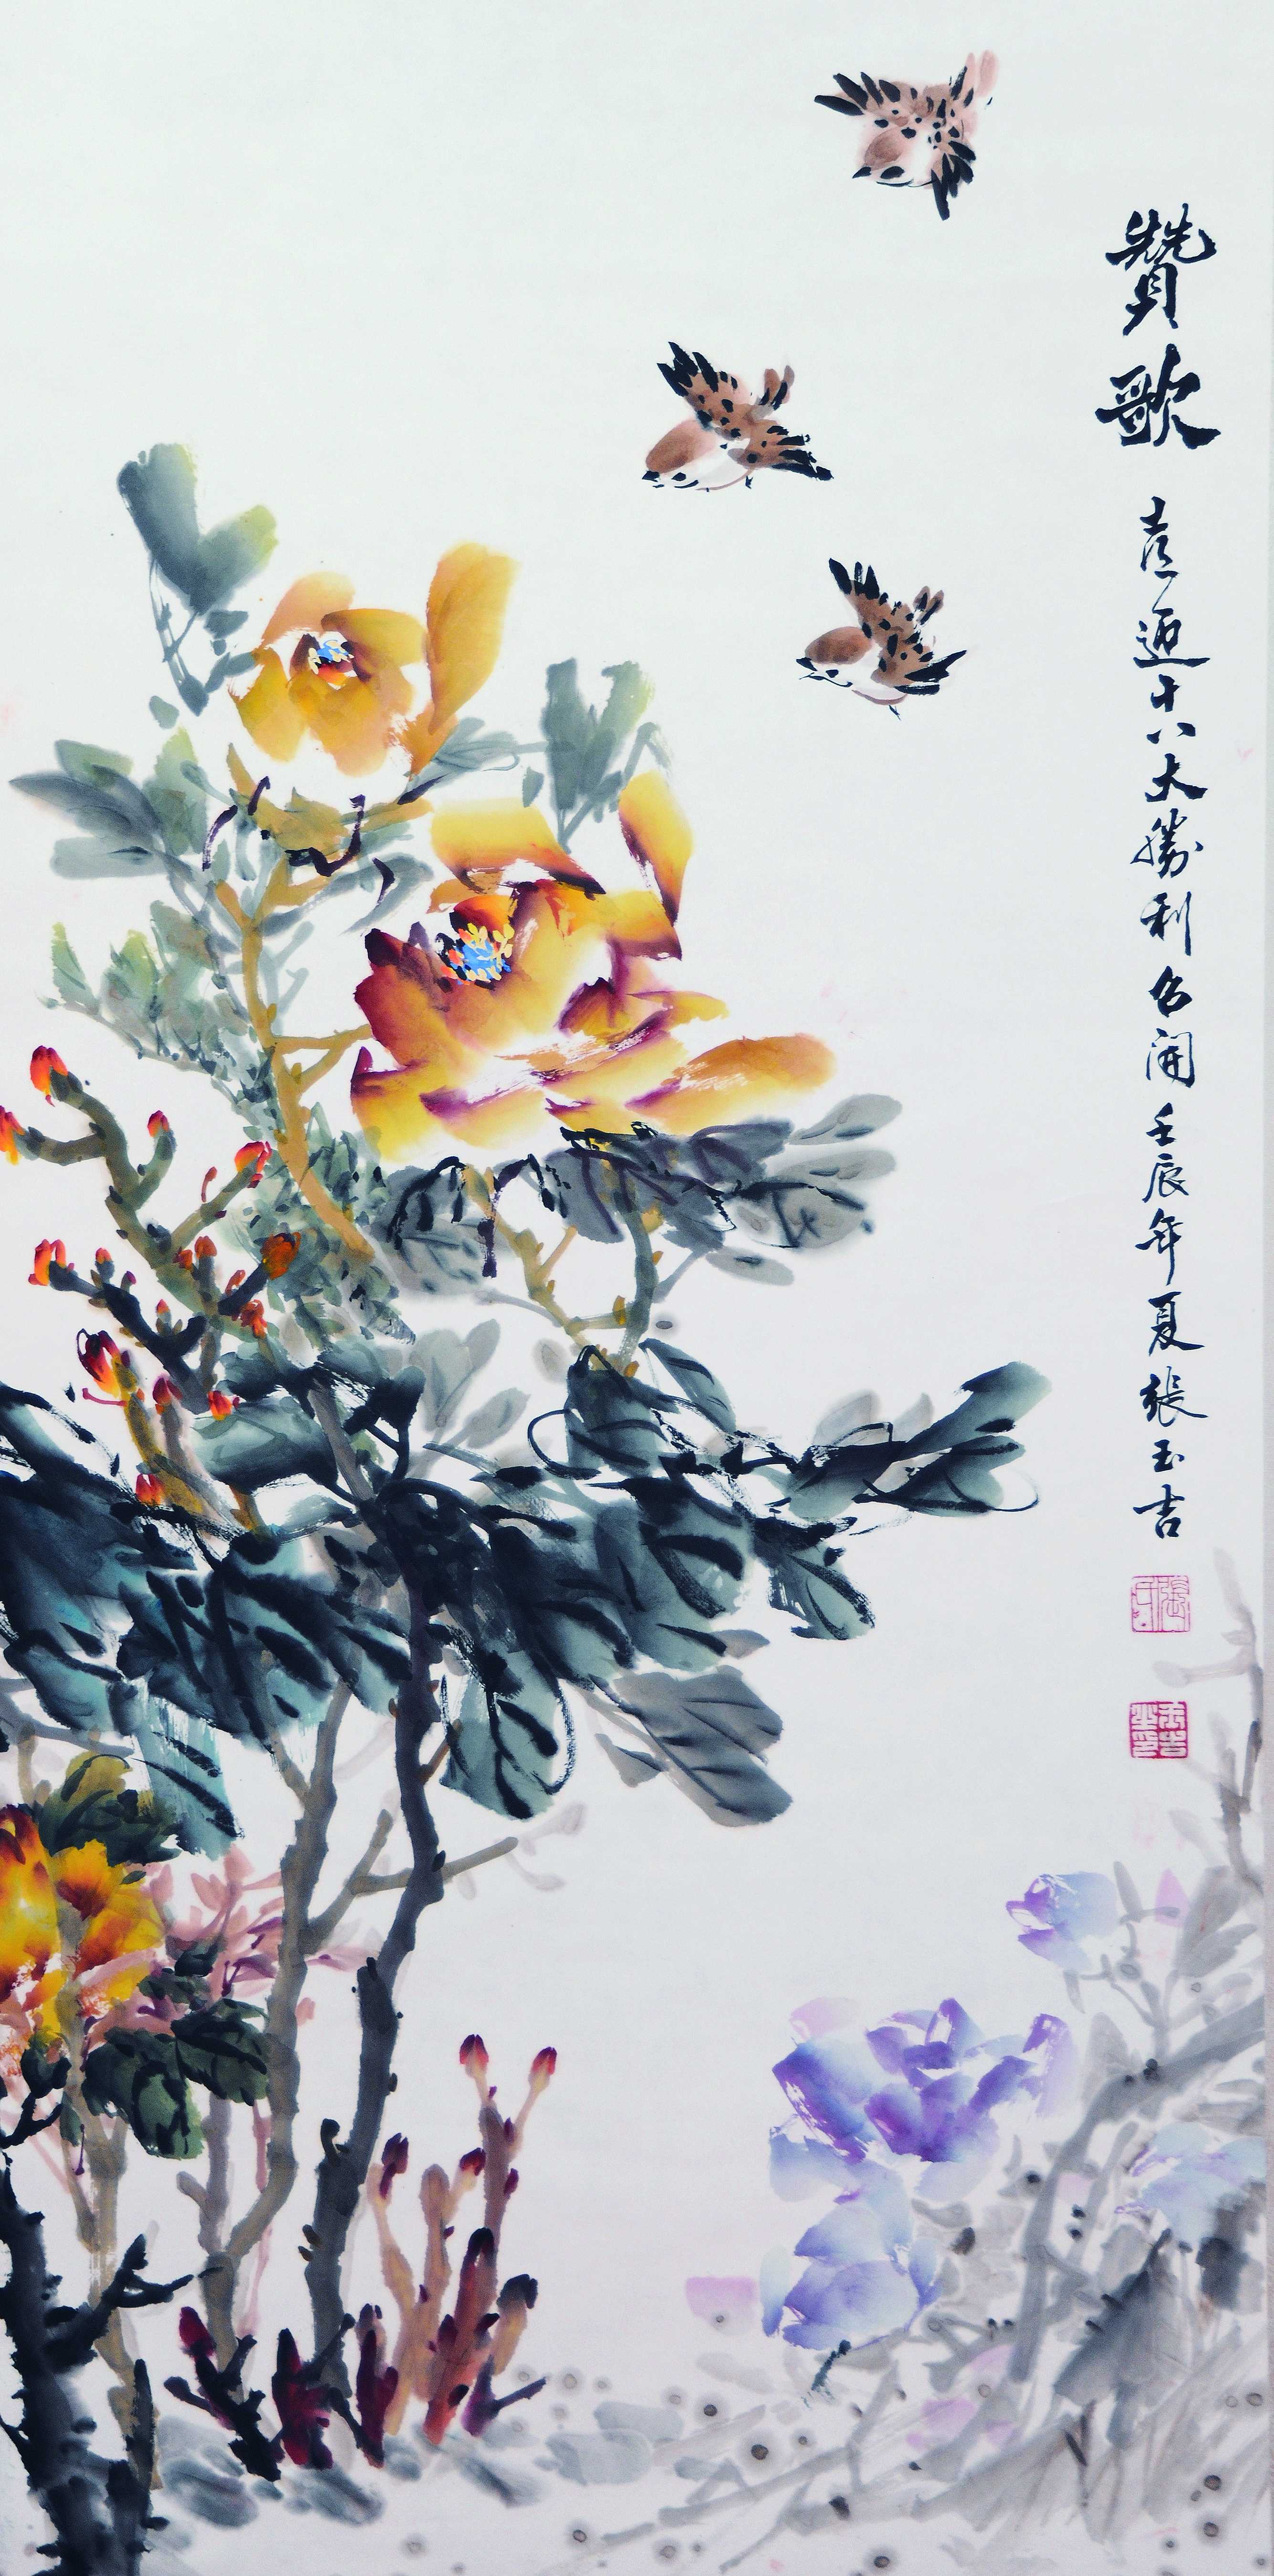 贊歌
喜迎十八大勝利召開壬辰年夏張玉吉